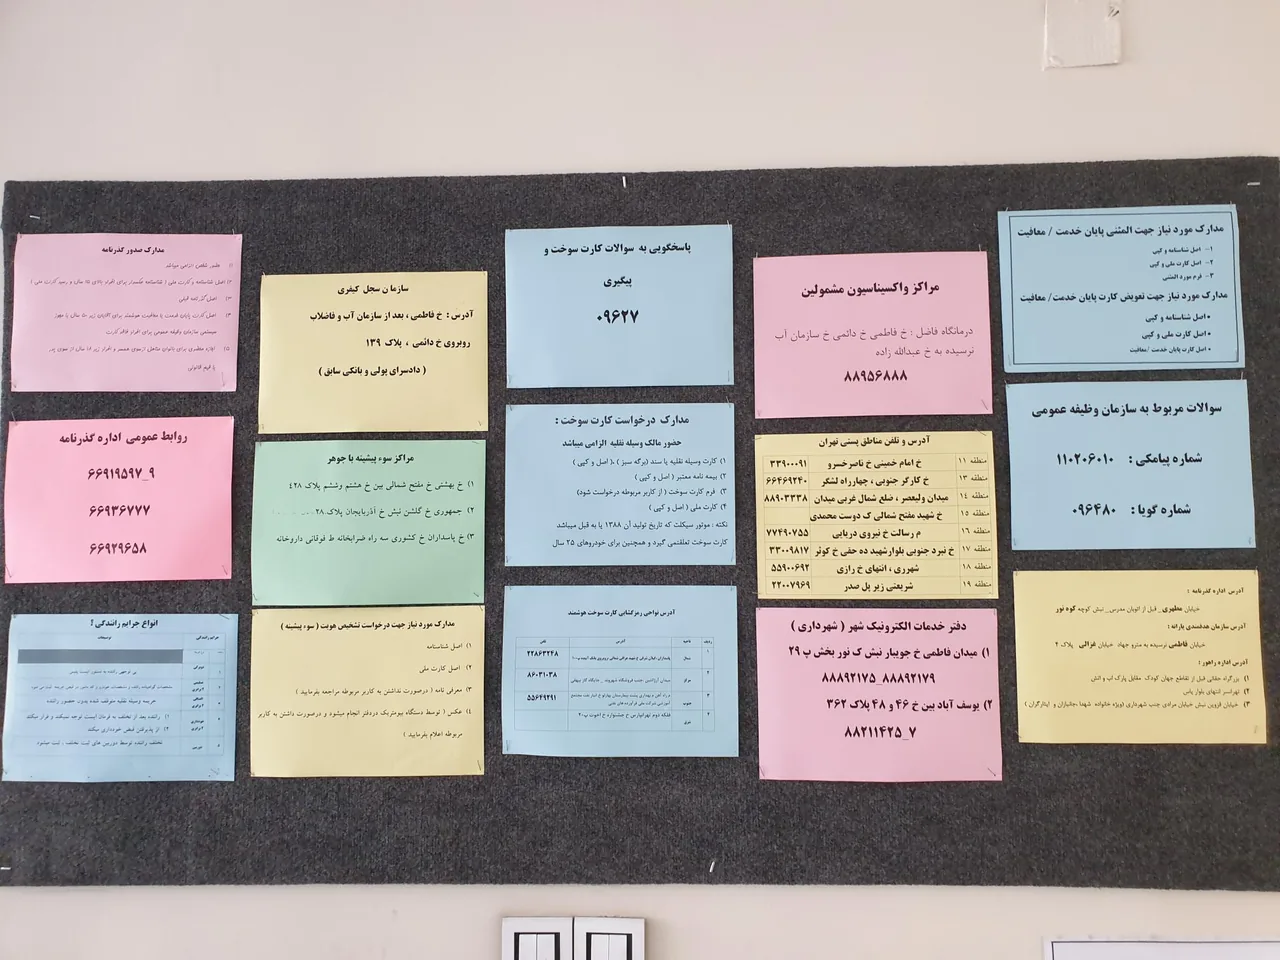 مدارک مورد نیاز جهت المثنی پایان خدمت / معافیت
۱- اصل شناسنامه و کپی
۲- اصل کارت ملی و کپی
۳- فرم مورد المثنی
مدارک مورد نیاز جهت تعویض کارت پایان خدمت/ معافیت
• اصل شناسنامه و کپی
• اصل کارت ملی و کپی
• اصل کارت پایان خدمت /معافیت
سوالات مربوط به سازمان وظیفه عمومی
شماره پیامکی : ۱۱۰۲۰۶۰۱۰
شماره گویا : ۰۹۶۴۸۰
آدرس اداره گذرنامه :
خیابان مطهری_ قبل از اتوبان مدرس_ نبش کوچه کوه نور
آدرس سازمان هدفمندی یارانه :
خیابان فاطمی نرسیده به مترو جهاد خیابان غزالی پلاک ۲
آدرس اداره راهور :
۱) بزرگراه حقانی قبل از تقاطع جهان کودک مقابل پارک آب و آتش
۲) تهرانسر انتهای بلوار یاس
۳) خیابان قزوین نبش خیابان مرادی جنب شهرداری (ویژه خانواده شهدا ،جانبازان و ایثارگران )
مراکز واکسیناسیون مشمولین
درمانگاه فاضل : خ فاطمی خ دائمی خ سازمان آب
نرسیده به خ عبدالله زاده
۸۸۹۵۶۸۸۸
آدرس و تلفن مناطق پستی تهران
منطقه ۱۱ خ امام خمینی خ ناصرخسرو ۳۳۹۰۰۰۹۱
منطقه ۱۳ خ کارگر جنوبی ، چهارراه لشگر ۶۶۴۶۹۲۴۰
منطقه ۱۴ میدان ولیعصر ، ضلع شمال غربی میدان ۸۸۹۰۳۳۳۸
منطقه ۱۵ خ شهید مفتح شمالی ک دوست محمدی
منطقه ۱۶ م رسالت خ نیروی دریایی ۷۷۴۹۰۷۵۵
منطقه ۱۷ خ نبرد جنوبی بلوارشهید ده حقی خ کوثر ۳۳۰۰۹۸۱۷
منطقه ۱۸ شهرری ، انتهای خ رازی ۵۵۹۰۰۶۹۲
منطقه ۱۹ شریعتی زیر پل صدر ۲۲۰۰۷۹۶۹
دفتر خدمات الکترونیک شهر ( شهرداری )
۱) میدان فاطمی خ جویبار نبش ک نور بخش پ ۲۹
۸۸۸۹۲۱۷۵_۸۸۸۹۲۱۷۹
۲) یوسف آباد بین خ ۴۶ و ۴۸ پلاک ۳۶۲
۸۸۲۱۱۴۲۵_۷
پاسخگویی به سوالات کارت سوخت و
پیگیری
۰۹۶۲۷
مدارک درخواست کارت سوخت :
حضور مالک وسیله نقلیه الزامی میباشد
۱) کارت وسیله نقلیه یا سند (برگه سبز ) ،( اصل و کپی )
۲) بیمه نامه معتبر ( اصل و کپی )
۳) فرم کارت سوخت ( از کاربر مربوطه درخواست شود)
۴) کارت ملی ( اصل و کپی )
نکته : موتور سیکلت که تاریخ تولید آن ۱۳۸۸ یا به قبل میباشد
کارت سوخت تعلقنمی گیرد و همچنین برای خودروهای ۲۵ سال
آدرس نواحی رمزگشایی کارت سوخت هوشمند
ردیف ناحیه آدرس تلفن
۱ شمال ۲۲۸۶۳۲۴۸
۲ مرکز ۸۶۰۳۱۰۳۸
۳ جنوب ۵۵۶۴۹۲۹۱
سازمان سجل کیفری
آدرس : خ فاطمی ، بعد از سازمان آب و فاضلاب
روبروی خ دائمی ، پلاک ۱۳۹
( دادسرای پولی و بانکی سابق )
مراکز سوء پیشینه با جوهر
۱) خ بهشتی خ مفتح شمالی بین خ هشتم وششم پلاک ۴۲۸
۲) جمهوری خ گلشن نبش خ آذربایجان پلاک ۲۸
۳) خ پاسداران خ کشوری سه راه ضرابخانه ط فوقانی داروخانه
مدارک مورد نیاز جهت درخواست تشخیص هویت ( سوء پیشینه )
۱) اصل شناسنامه
۲) اصل کارت ملی
۳) معرفی نامه ( درصورت نداشتن به کاربر مربوطه مراجعه بفرمایید )
۴) عکس ( توسط دستگاه بیومتریک دردفتر انجام میشود و درصورت داشتن به کاربر
مربوطه اعلام بفرمایید )
مدارک صدور گذرنامه
۱) حضور شخص الزامی میباشد
۳) اصل گذرنامه قبلی
یا قیم قانونی
روابط عمومی اداره گذرنامه
۶۶۹۱۹۵۹۷_۹
۶۶۹۳۶۷۷۷
۶۶۹۲۹۶۵۸
انواع جرایم رانندگی ؟
جرایم رانندگی توضیحات
جریمه وسیله نقلیه متوقف شده بدون حضور راننده
تخلف راننده توسط دوربین های ثبت تخلف ، ثبت میشود